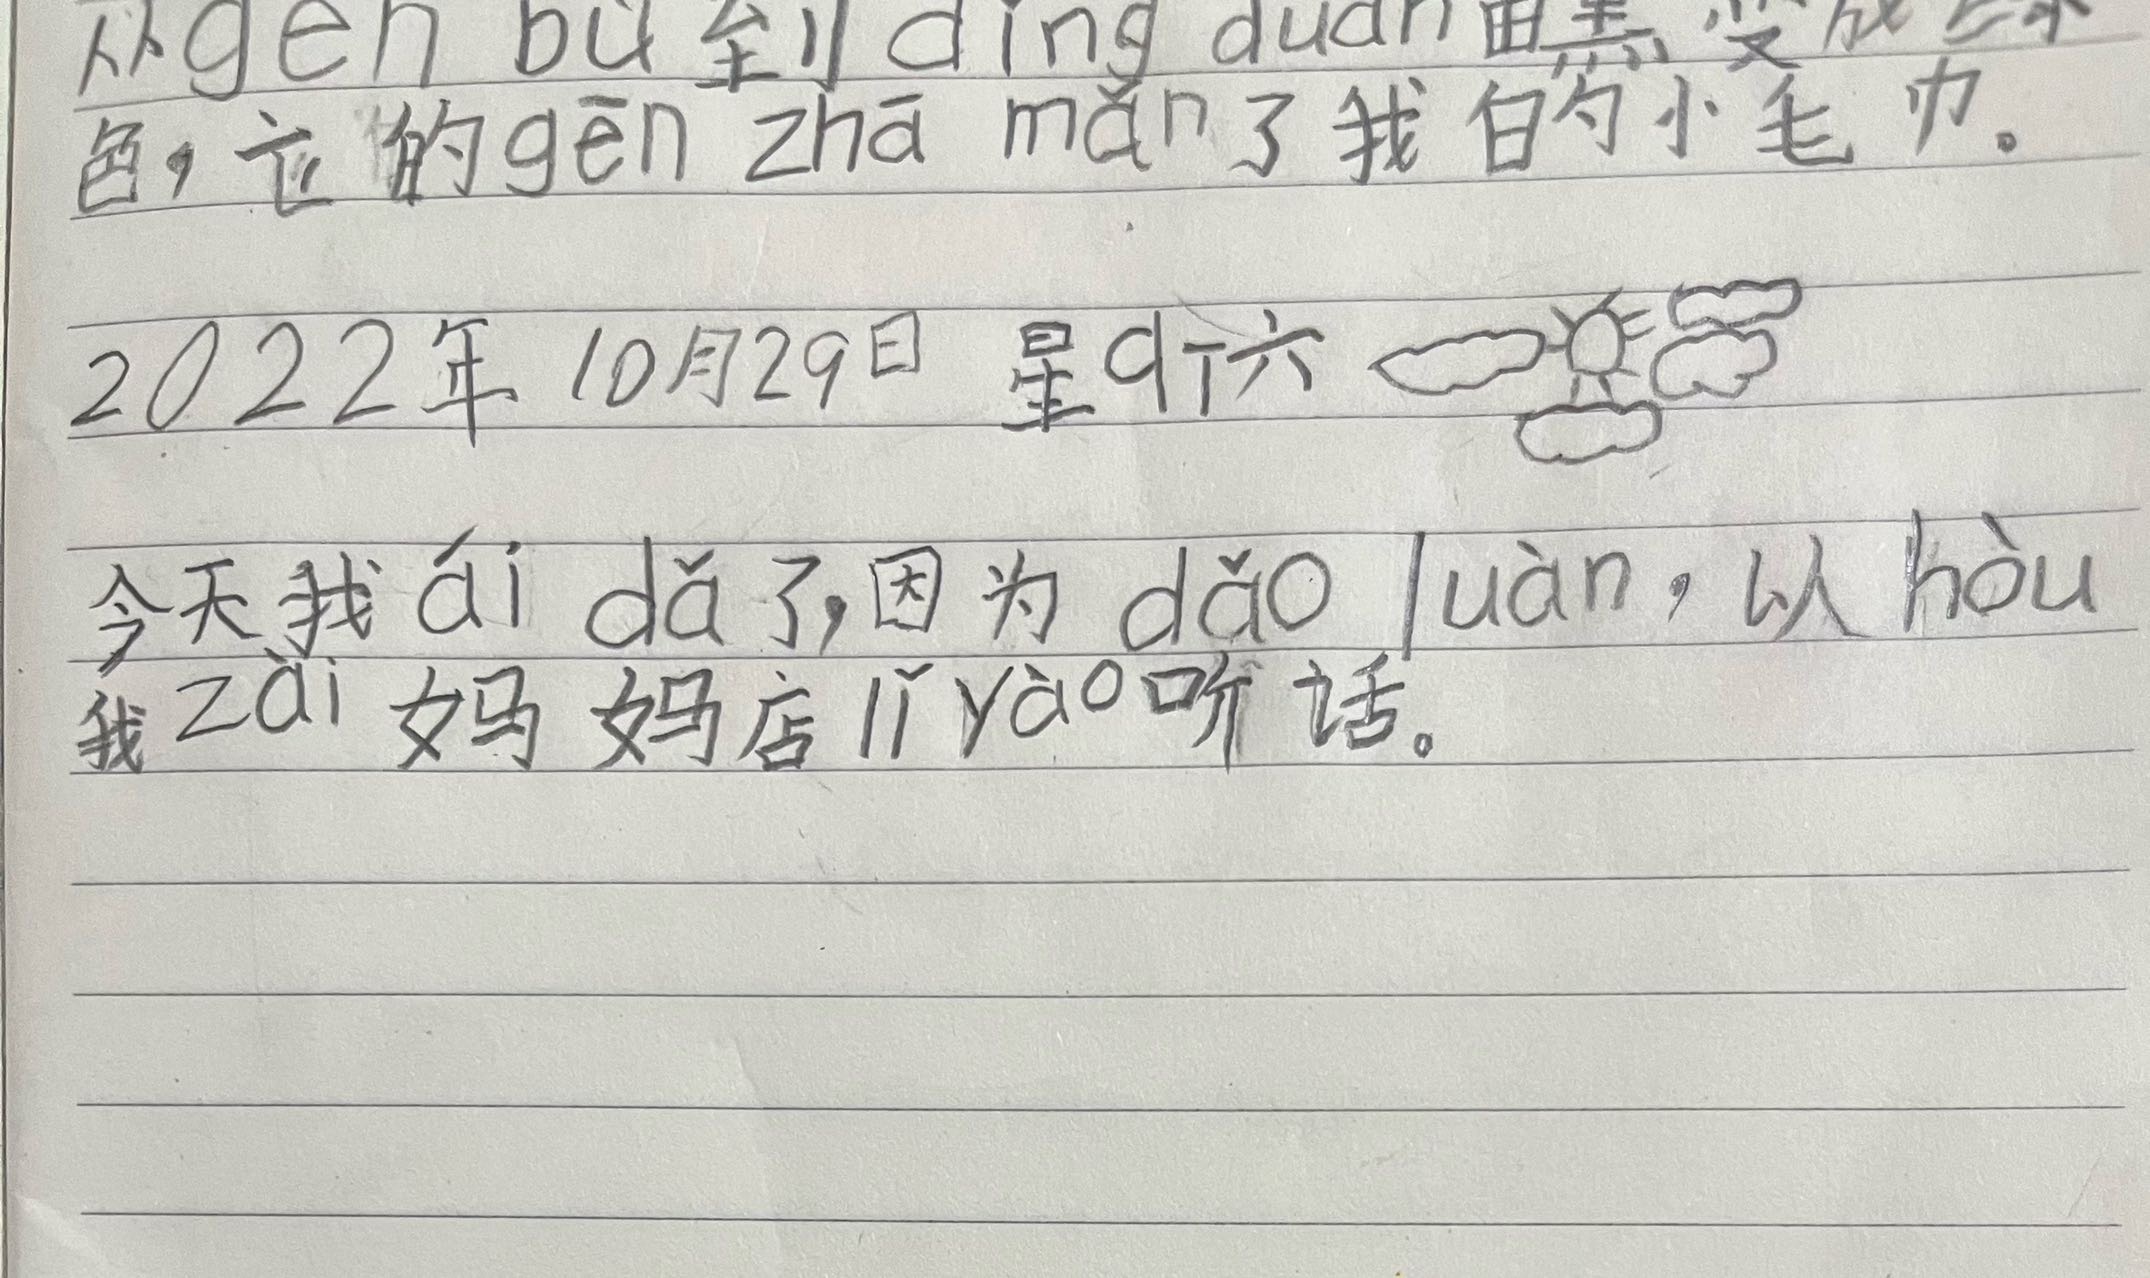 从gen bù到dǐng duān由黑变成绿
色，它的gēn zhā mǎn了我白的小毛巾。
2022年 10月29日 星qī六
今天我ái dǎ了，因为dǎo luàn，以hòu
我zài妈妈店lǐ yào听话。